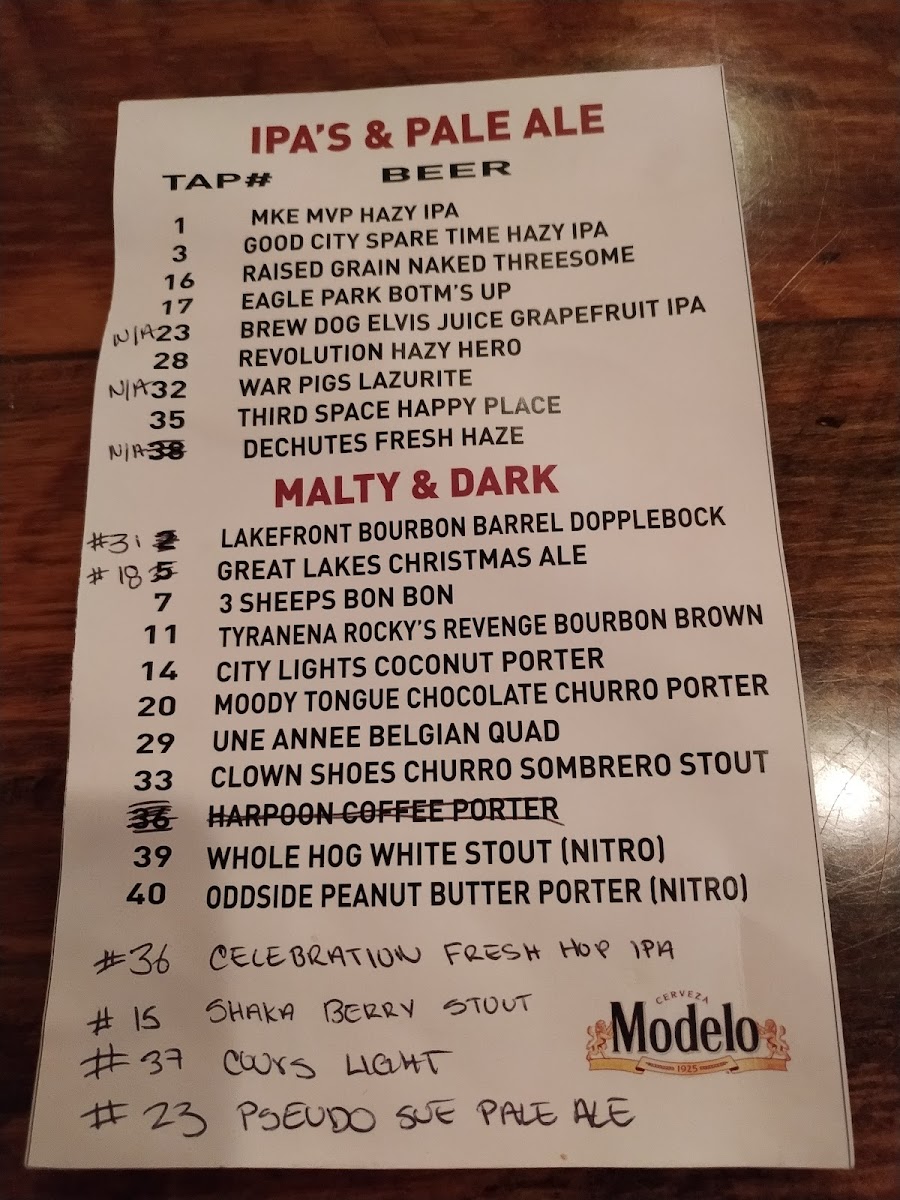 IPA'S & PALE ALE
TAP# BEER
1 MKE MVP HAZY IPA
3 GOOD CITY SPARE TIME HAZY IPA
16 RAISED GRAIN NAKED THREESOME
17 EAGLE PARK BOTM'S UP
N/A 23 BREW DOG ELVIS JUICE GRAPEFRUIT IPA
28 REVOLUTION HAZY HERO
N/A 32 WAR PIGS LAZURITE
35 THIRD SPACE HAPPY PLACE
N/A 38 DECHUTES FRESH HAZE
MALTY & DARK
#31 2 LAKEFRONT BOURBON BARREL DOPPLEBOCK
#18 5 GREAT LAKES CHRISTMAS ALE
7 3 SHEEPS BON BON
11 TYRANENA ROCKY'S REVENGE BOURBON BROWN
14 CITY LIGHTS COCONUT PORTER
20 MOODY TONGUE CHOCOLATE CHURRO PORTER
29 UNE ANNEE BELGIAN QUAD
33 CLOWN SHOES CHURRO SOMBRERO STOUT
36 HARPOON COFFEE PORTER
39 WHOLE HOG WHITE STOUT (NITRO)
40 ODDSIDE PEANUT BUTTER PORTER (NITRO)
#36 CELEBRATION FRESH HOP IPA
#15 SHAKA BERRY STOUT
#37 COORS LIGHT
#23 PSEUDO SUE PALE ALE
CERVEZA
Modelo
1925